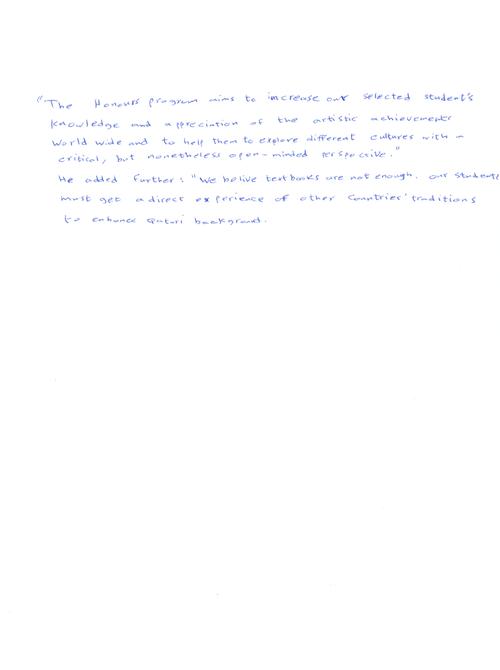 "The Honours' program aims to increase our selected student's
knowledge and appreciation of the artistic achievements
world wide and to help them to explore different cultures with a
critical, but nonetheless open-minded perspective."
He added further: "We belive textbooks are not enough. our students
must get a direct experience of other Countries' traditions
to enhance Qatari background.